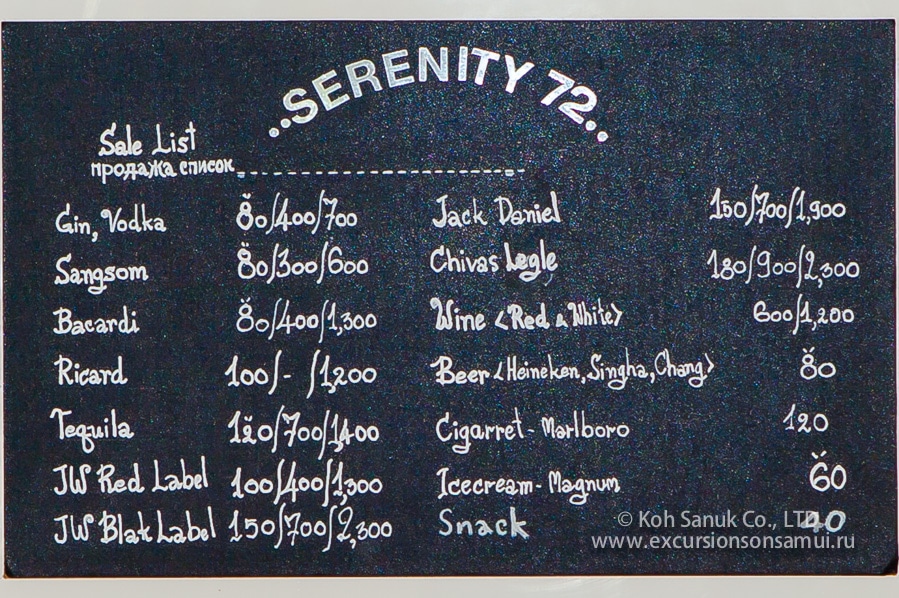 ..SERENITY 72..
Sale List
продажа список
Gin, Vodka 80/400/700
Sangsom 80/300/600
Bacardi 80/400/1,300
Ricard 100/- /1,200
Tequila 120/700/1,400
JW Red Label 100/400/1,300
JW Blak Label 150/700/2,300
Jack Daniel 150/700/1,900
Chivas Legle 180/900/2,300
Wine <Red & White> 600/1,200
Beer <Heineken, Singha, Chang> 80
Cigarret - Marlboro 120
Icecream - Magnum 60
Snack 40
© Koh Sanuk Co., LTD
www.excursionsonsamui.ru